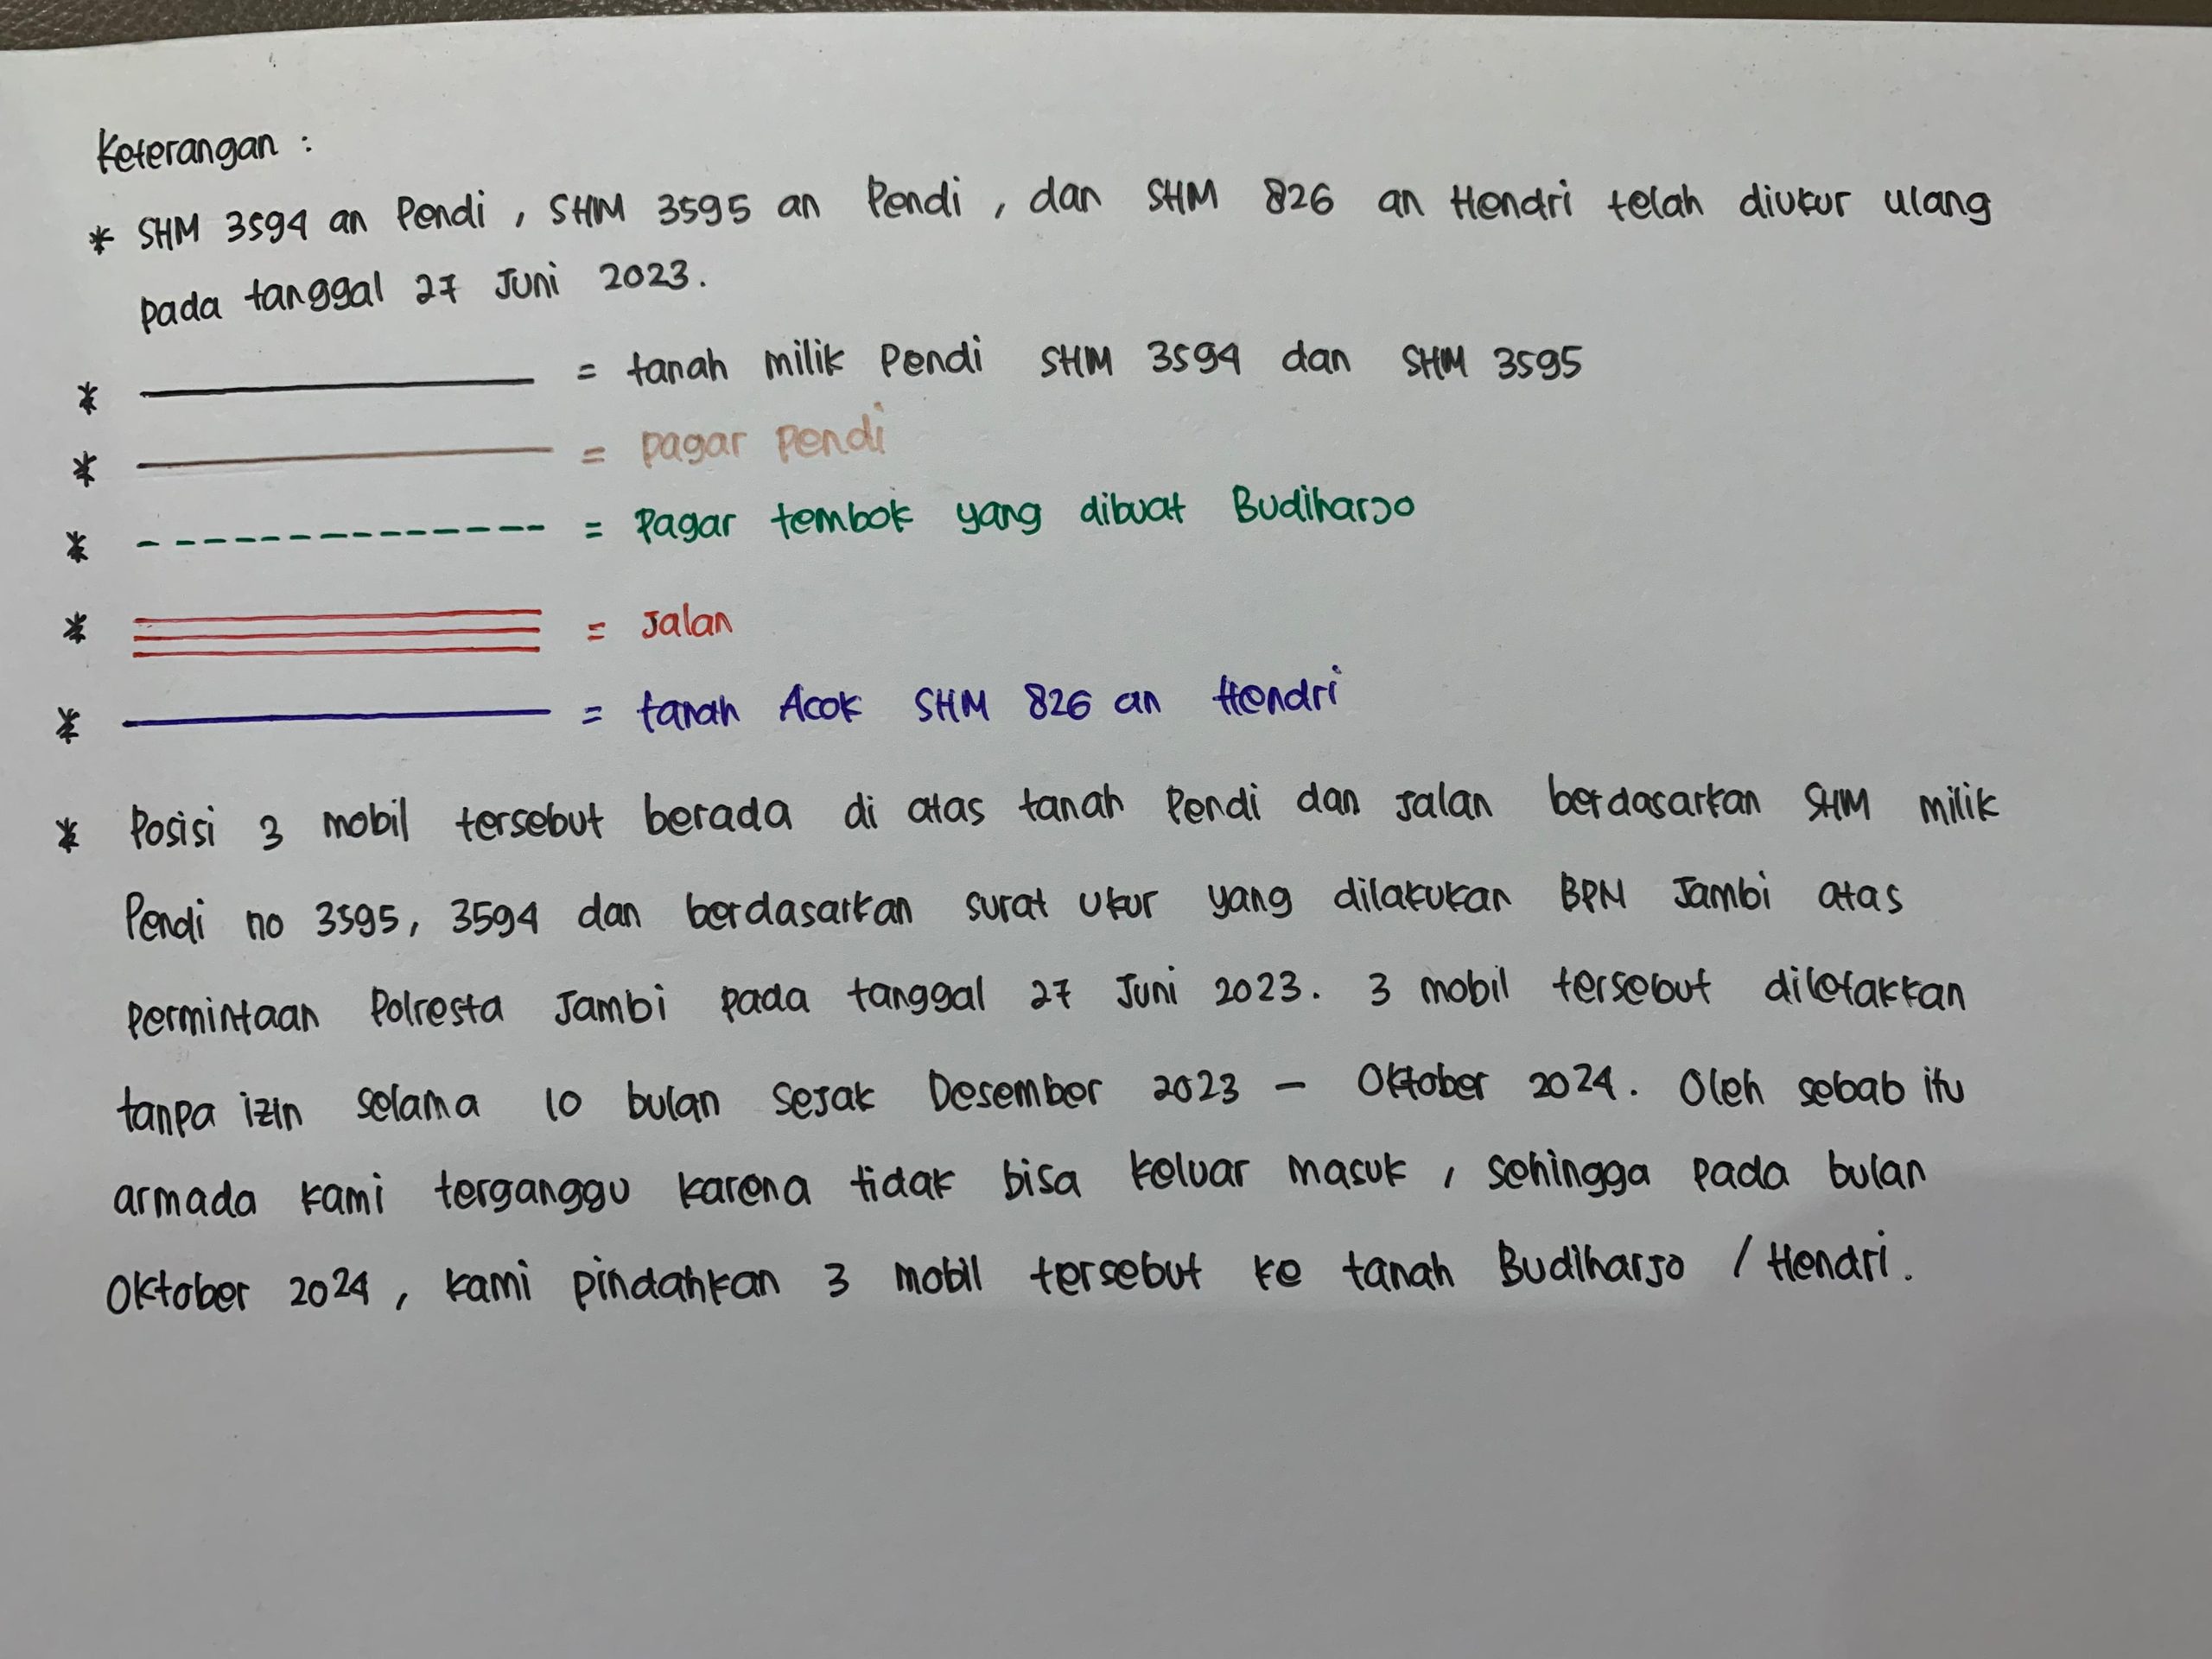 Keterangan :
* SHM 3594 an Pendi , SHM 3595 an Pendi , dan SHM 826 an Hendri telah diukur ulang
pada tanggal 27 Juni 2023.
* = tanah milik Pendi SHM 3594 dan SHM 3595
* = pagar pendi
* - - - - - - - - - - - - - = Pagar tembok yang dibuat Budiharjo
* = Jalan
* = tanah Acok SHM 826 an Hendri
* Posisi 3 mobil tersebut berada di atas tanah Pendi dan Jalan berdasarkan SHM milik
Pendi no 3595, 3594 dan berdasarkan surat ukur yang dilakukan BPN Jambi atas
permintaan Polresta Jambi pada tanggal 27 Juni 2023. 3 mobil tersebut diletakkan
tanpa izin selama 10 bulan sejak Desember 2023 - Oktober 2024. Oleh sebab itu
armada kami terganggu karena tidak bisa keluar masuk , sehingga pada bulan
Oktober 2024 , kami pindahkan 3 mobil tersebut ke tanah Budiharjo / Hendri.